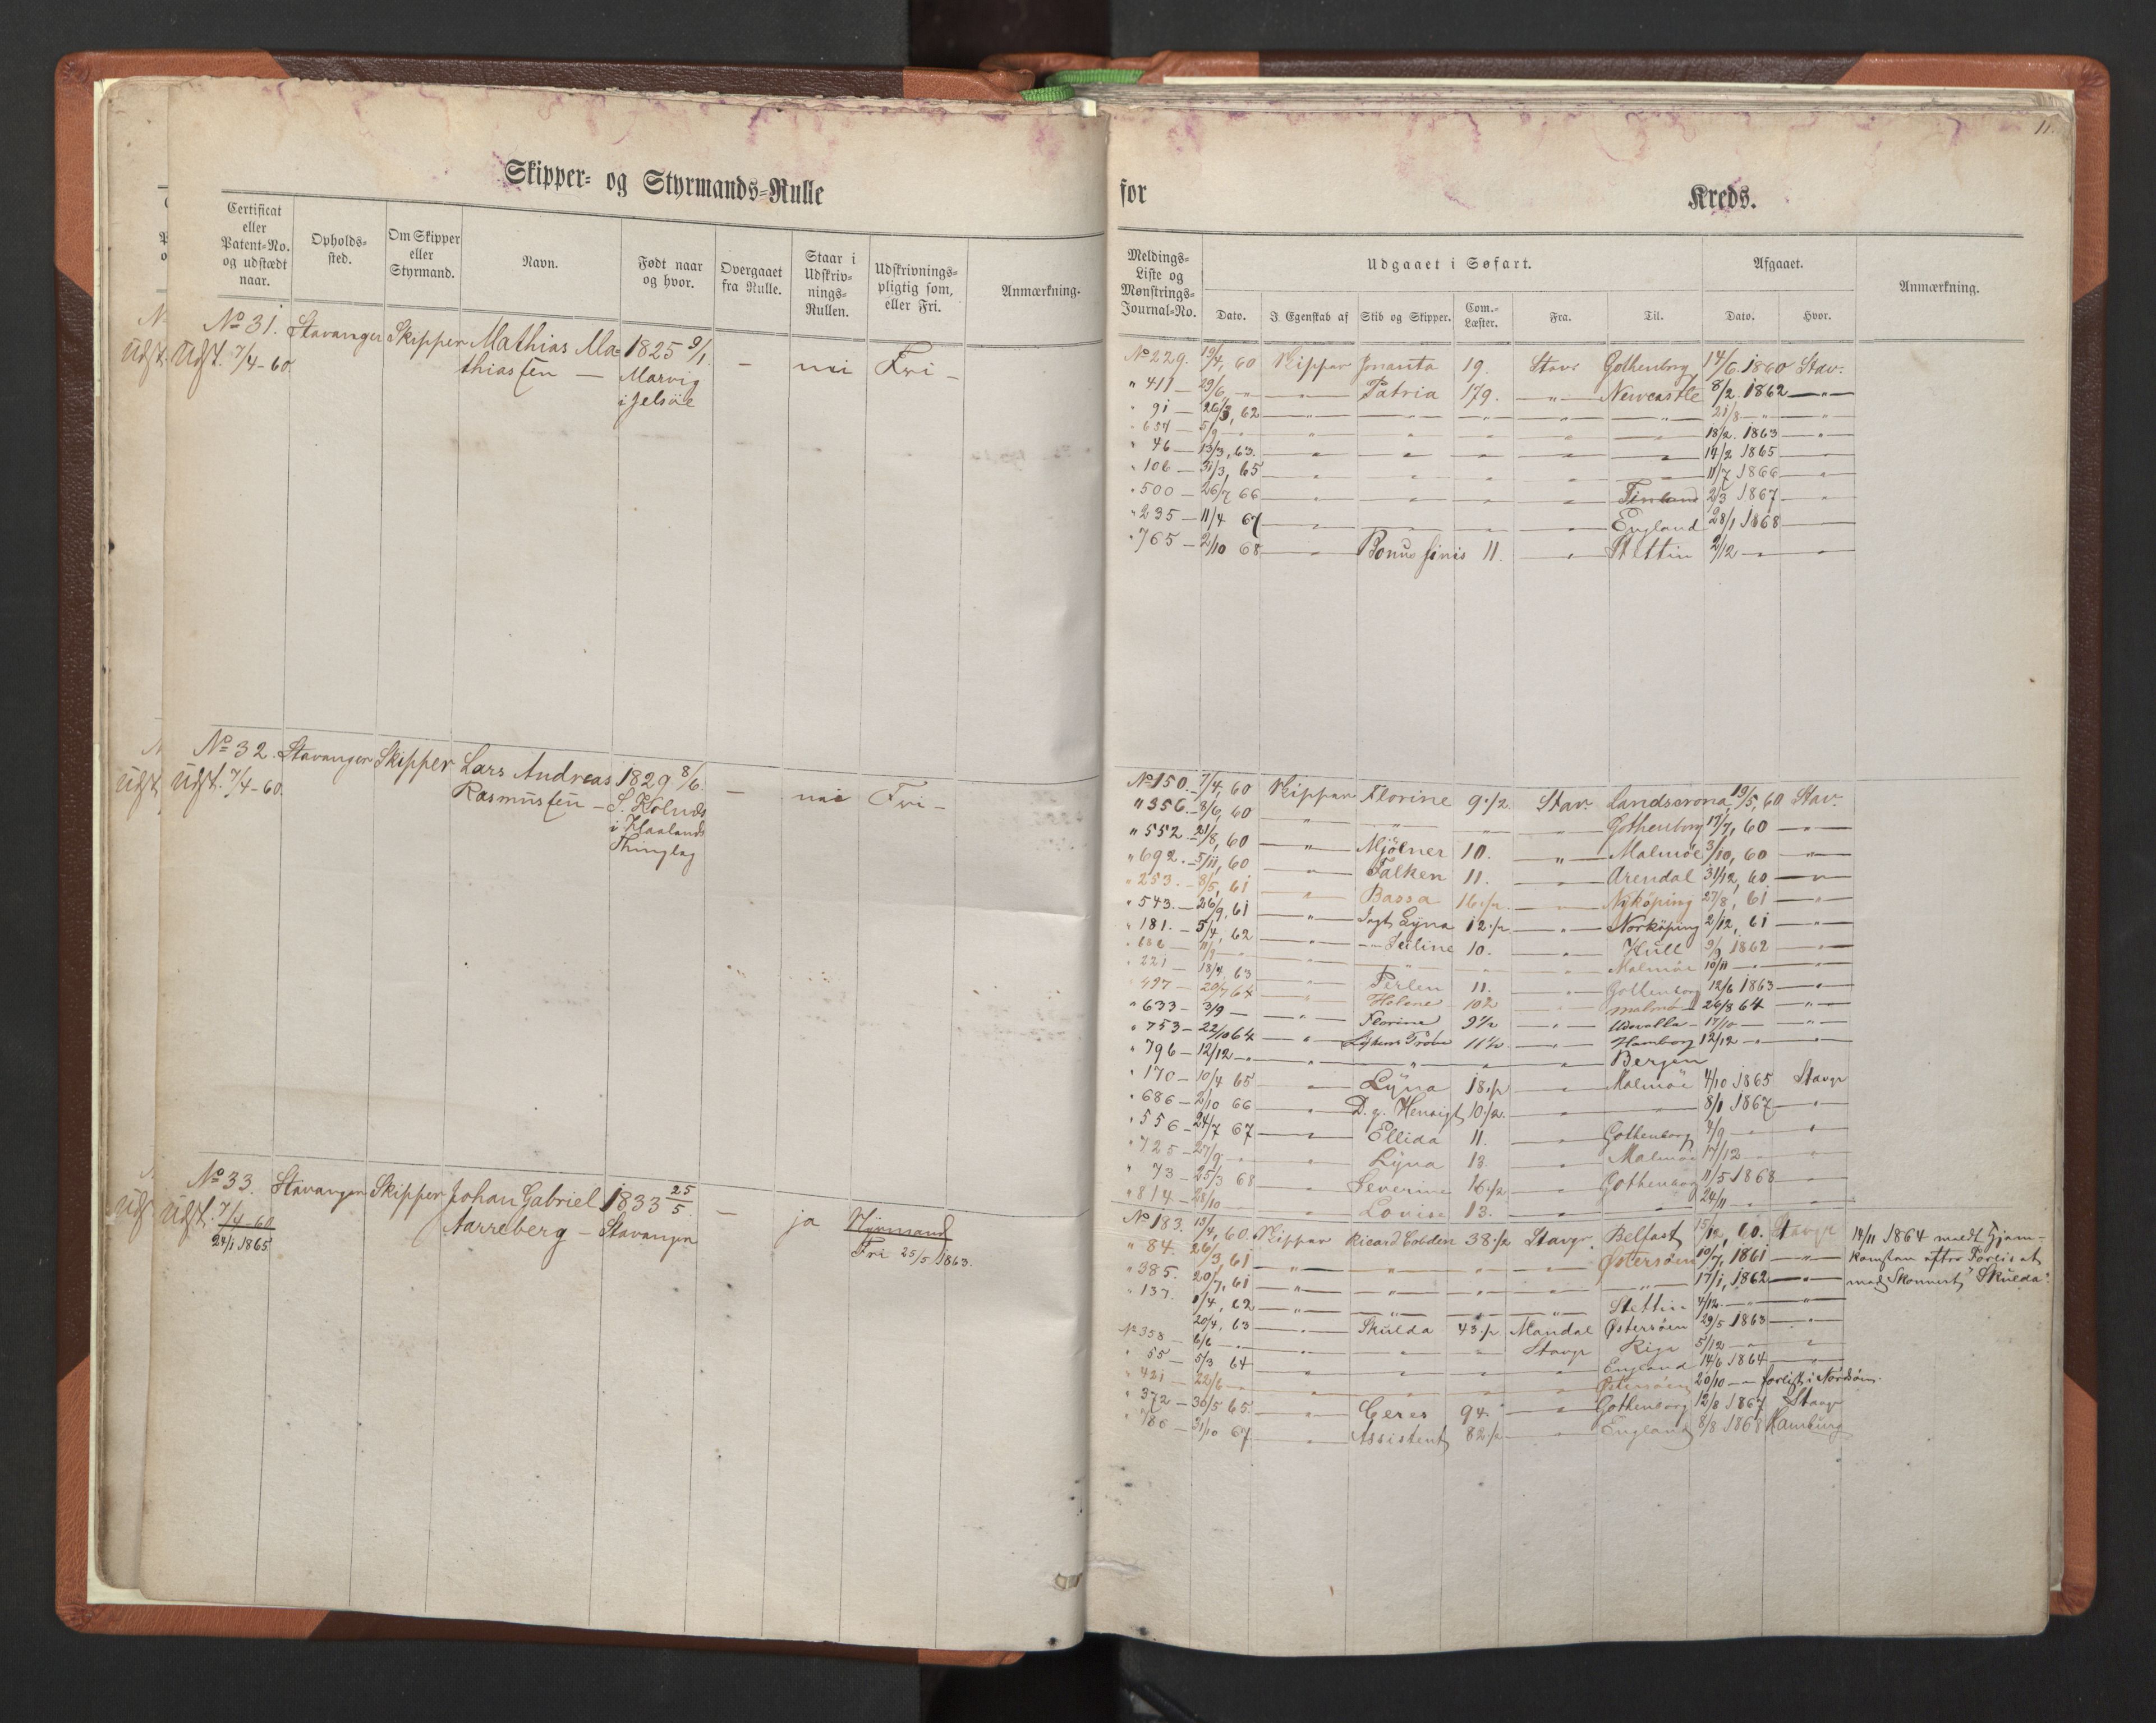 11.
Skipper= og Styrmands=Rulle
for
Kreds.
Certificat eller Patent=No. og udstædt naar.
Opholds=sted.
Om Skipper eller Styrmand.
Navn.
Født naar og hvor.
Overgaaet fra Rulle.
Staar i Udskriv=nings=Rullen.
Udskrivnings=pligtig som, eller Fri.
Anmærkning.
Meldings=Liste og Mønstrings=Journal=No.
Udgaaet i Søfart.
Afgaaet.
Anmærkning.
Dato.
I Egenskab af
Skib og Skipper.
Com.=Læster.
Fra.
Til.
Dato.
Hvor.
No 31. Stavanger Skipper Mathias Ma= 1825 9/1. — nei Fri —
Udst. 7/4-60. thiassen — Marvig
i Jelsöe
No 229. 19/4, 60 Skipper Jonanta 19. Stavr Gothenborg 14/6. 1860 Stav:
" 411 — 29/6 — " — " — Patria 179. — " — Newcastle 8/2. 1862 — " —
" 91 — 26/3, 62 — " — — " — — " — — " — — " — 21/8 — " — — " —
" 654 — 5/9 — " — " — " — " — " — 18/2. 1863 — " —
" 46 — 13/3, 63. — " — " — " — " — " — 14/2 1865 — " —
" 106 — 31/3, 65 — " — " — " — " — " — 11/7 1866 — " —
" 500 — 26/7 66 — " — " — " — " — Finland 2/3 1867 — " —
" 235 — 11/4 67 — " — " — England 28/1 1868 — " —
" 765 — 2/10 68 — " — Bonus finis 11. " Stettin 2/12 — " — " —
No 32. Stavanger Skipper Lars Andreas 1829 8/6. — nei Fri —
Udst. 7/4-60. Rasmussen — S. Kolnes
i Haalands
Thinglag
No 150. — 7/4, 60 Skipper Florine 9 1/2. Stav: Landscrona 19/5, 60 Stav:
" 356. — 8/6, 60 — " — — " — " — " — Gothenborg 17/7, 60 — " —
" 552. — 21/8, 60 — " — Mjölner 10. — " — Malmöe 3/10, 60 — " —
" 692. — 5/11, 60 — " — Falken 11. — " — Arendal 31/12, 60 — " —
" 253. — 8/5, 61 — " — Bassa 16 1/2. — " — Nyköping 27/8, 61 — " —
" 543. — 26/9, 61 — " — Jagt Lyna 12 1/2 — " — Norköping 2/12, 61 — " —
" 181. — 5/4, 62 — " — — " — Seiline 10. — " — Hull 9/9 1862 — " —
" 686 — 11/9 — " — " — " — " — Malmöe 10/11 — " — " —
" 221 — 18/4 63 — " — Perlen 11. — " — Gothenborg 12/6 1863 — " —
" 497 — 20/7 64 — " — Helene 10 1/2 — " — Malmö — 26/8 64 — " —
" 633 — 3/9 — — " — Florine 9 1/2 — " — Udevalla — 17/10 — — " —
" 753 — 22/10 64 — " — Lykens Pröve 11 1/2 — " — Hamborg 12/12 — " — " —
" 796 — 12/12 — " — " — " — " — Bergen
" 170 — 10/4 65 — " — Lyna 18 1/2 — " — Malmöe 4/10 1865 Stavgr
" 686 — 2/10 66 — " — D. g. Hensigt 10 1/2. — " — " — 8/1 1867 — " —
" 556 — 24/7 67 — " — Ellida 11. — " — Gothenborg 4/9 — " — " —
" 725 — 27/9 — " — " — Lyna 13. — " — Malmöe 17/12 — " — " —
" 73 — 25/3 68 — " — Severine 16 1/2 — " — Gothenborg 11/5 1868 — " —
" 814 — 28/10 — " — Louise 13. — " — " — 24/11 — " — " —
No 33. Stavanger Skipper Johan Gabriel 1833 25/5 — ja Styrmand
Udst. 7/4-60 Aarreberg — Stavanger Fri 25/5 1863.
24/1 1865
No 183. 13/4, 60. Skipper Ricard Cobden 38 1/2 Stavgr. Belfast 15/12, 60. Stavgr
" 84. 26/3, 61 — " — " — " — " — Østersöen 10/7, 1861 — " —
" 385. 20/7, 61 — " — " — " — " — " — 17/1, 1862 — " —
" 137. 1/4, 62 — " — " — " — " — Stettin 4/12 — " — " —
20/4, 63 — " — Skulda 43 1/2 Mandal Østersöen 29/5 1863 — " —
No 358 — 6/6 — " — " — " — Stavgr Riga 5/12 — " — " —
" 55 — 5/3 64 — " — " — " — " — England 14/6 1864 — " —
" 421 — 22/6 — " — " — " — " — Østersöen 20/10 — " — forlist i Nordsöen.
" 372 — 30/5 65. — " — Ceres 94. — " — Gothenborg 12/8 1867 Stavgr
" 786 — 31/10 67 — " — Assistent 82 1/2 — " — England 8/8 1868 Hamburg
14/11 1864 meldt Hjem=
komsten efter Forliset
med Skonnert "Skulda".